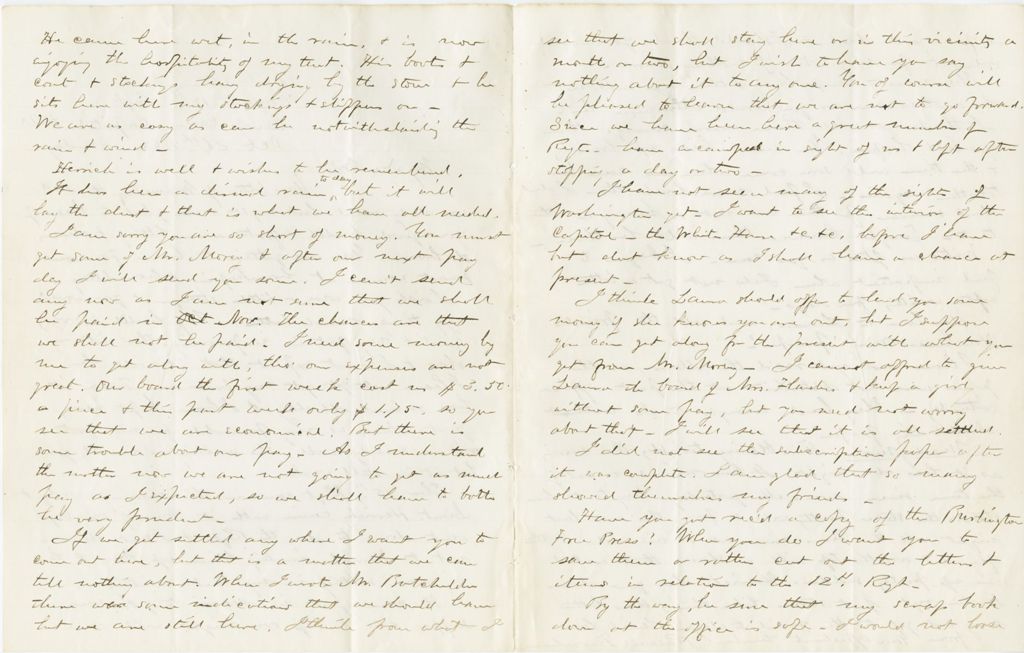 He came here wet, in the rain, & is now
enjoying the hospitality of my tent. His boots &
coat & stockings hang drying by the stove & he
sits here with my stockings & slippers on -
We are as cosy as can be notwithstanding the
rain & wind -
Herrick is well & wishes to be remembered.
It has been a dismal rain to day but it will
lay the dust & that is what we have all needed.
I am sorry you are so short of money. You must
get some of Mr. Morse & after our next pay
day I will send you some. I can't send
any now as I am not sure that we shall
be paid in Oct Nov. The chances are that
we shall not be paid. I need some money by
me to get along with, tho' our expenses are not
great. Our board the first week cost us $2.50
a piece & this past week only $1.75, so you
see that we are economical. But there is
some trouble about our pay. As I understand
the matter now we are not going to get as much
pay as I expected, so we shall have to both
be very prudent -
If we get settled any where I want you to
come out here, but this is a matter that we can
tell nothing about. When I wrote Mr. Batchelder
there was some indications that we should leave
but we are still here. I think from what I
see that we shall stay here or in this vicinity a
month or two, but I wish to have you say
nothing about it to any one. You of course will
be pleased to learn that we are not to go forward.
Since we have been here a great number of
Regts. have camped in sight of us & left after
stopping a day or two -
I have not seen many of the sights of
Washington yet. I want to see the interior of the
Capitol - the White House &c. &c. before I leave
but dont know as I shall have a chance at
present -
I think Laura should offer to lend you some
money if she knows you are out, but I suppose
you can get along for the present with what you
get from Mr. Morse - I cannot afford to give
Laura the board of Mrs. & keep a girl
without some pay, but you need not worry
about that - I will see that it is all settled.
I did not see the subscription paper after
it was complete. I am glad that so many
showed themselves my friends -
Have you got rec'd a copy of the Burlington
Free Press? When you do I want you to
save them or rather cut out the letters &
items in relation to the 12th Regt -
By the way, be sure that my scrap book
down at the office is safe - I would not loose